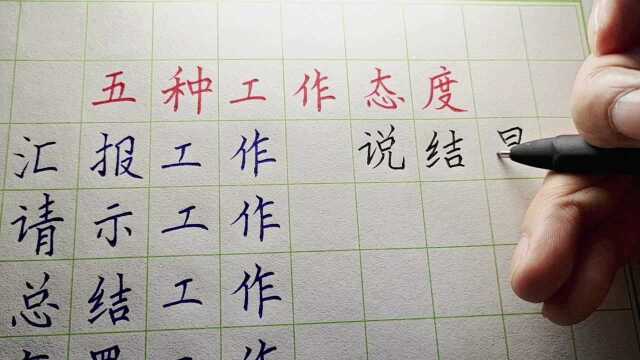 五种工作态度
汇报工作 说结
请示工作
总结工作
工作